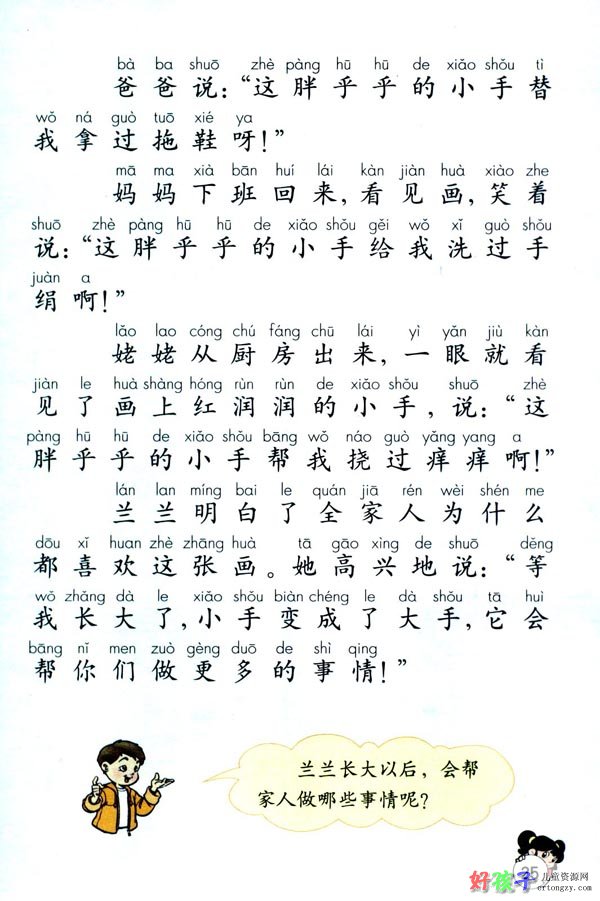 bà ba shuō zhè pàng hū hū de xiǎo shǒu tì
爸爸说：“这胖乎乎的小手替
wǒ ná guò tuō xié ya
我拿过拖鞋呀！”
mā ma xià bān huí lái kàn jiàn huà xiào zhe
妈妈下班回来，看见画，笑着
shuō zhè pàng hū hū de xiǎo shǒu gěi wǒ xǐ guò shǒu
说：“这胖乎乎的小手给我洗过手
juàn a
绢啊！”
lǎo lao cóng chú fáng chū lái yì yǎn jiù kàn
姥姥从厨房出来，一眼就看
jiàn le huà shàng hóng rùn rùn de xiǎo shǒu shuō zhè
见了画上红润润的小手，说：“这
pàng hū hū de xiǎo shǒu bāng wǒ náo guò yǎng yang a
胖乎乎的小手帮我挠过痒痒啊！”
lán lan míng bai le quán jiā rén wèi shén me
兰兰明白了全家人为什么
dōu xǐ huan zhè zhāng huà tā gāo xìng de shuō
都喜欢这张画。她高兴地说：“等
wǒ zhǎng dà le xiǎo shǒu biàn chéng le dà shǒu tā huì
我长大了，小手变成了大手，它会
bāng nǐ men zuò gèng duō de shì qing
帮你们做更多的事情！”
兰兰长大以后，会帮
家人做哪些事情呢？
好孩子 儿童资源网
ertongzy.com